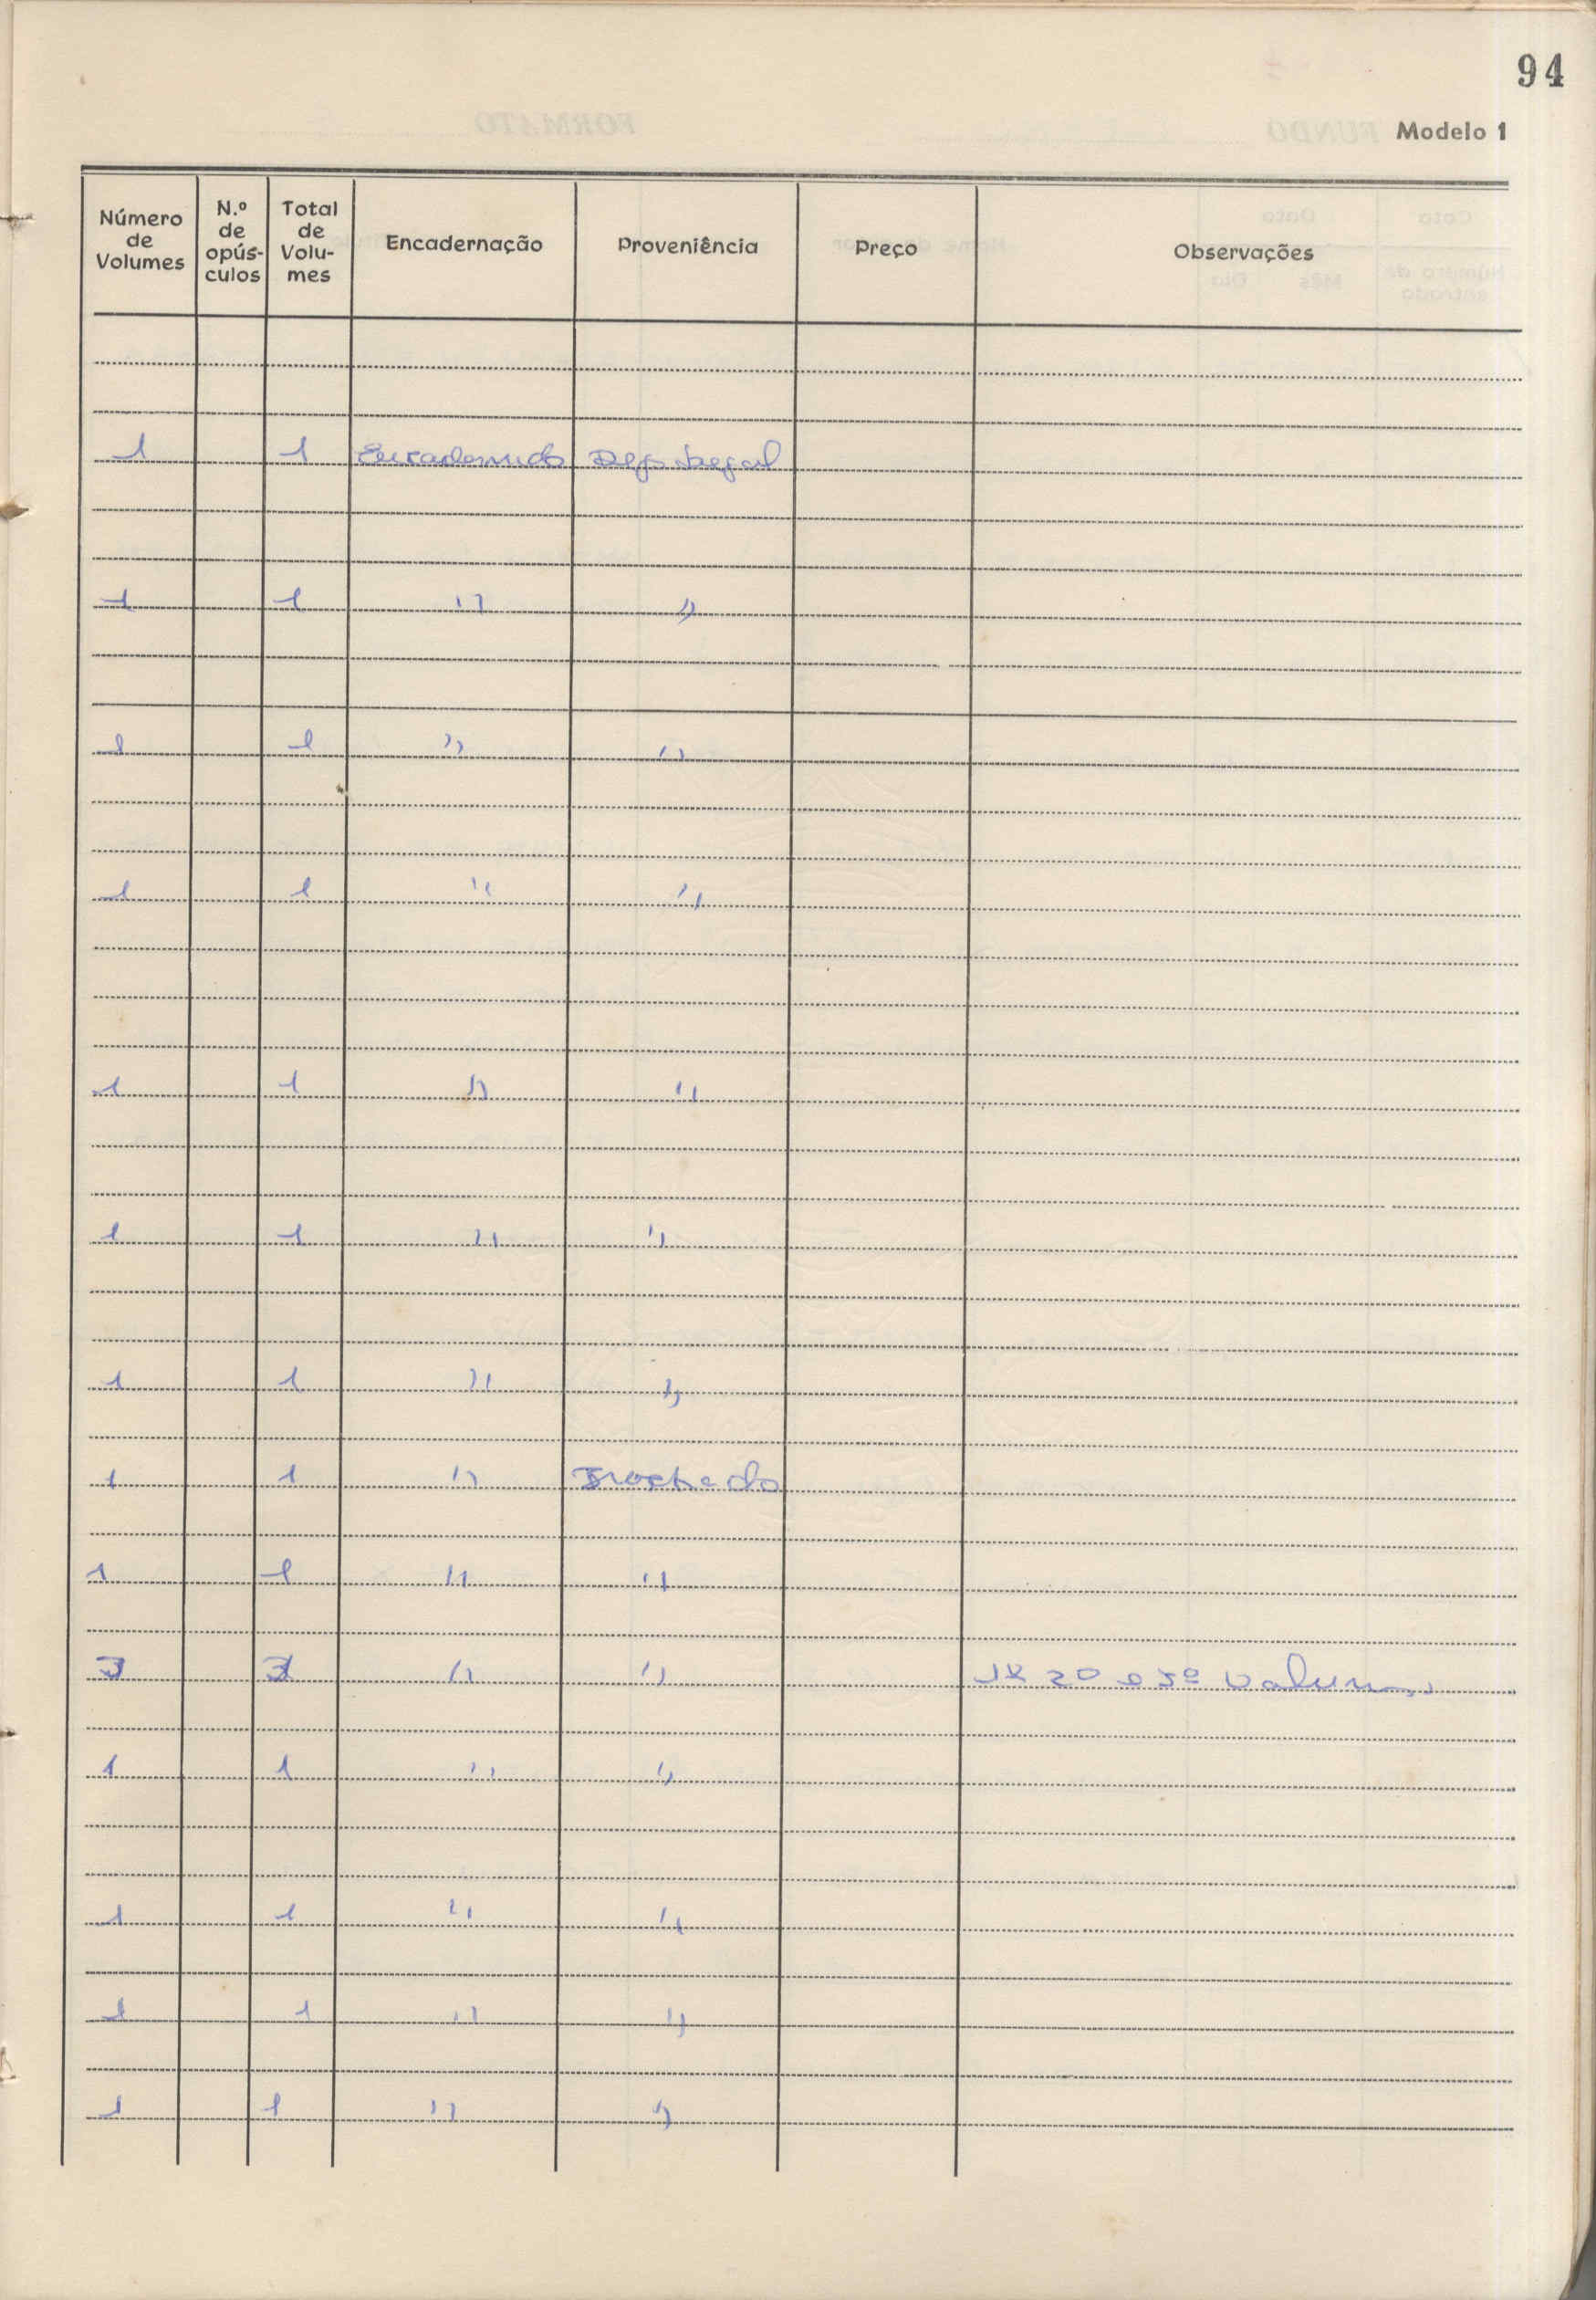 94
Modelo 1
Número de Volumes | N.º de opús-culos | Total de Volu-mes | Encadernação | Proveniência | Preço | Observações
1 1 Encadernado Dep Legal
1 1 " "
1 1 " "
1 1 " "
1 1 " "
1 1 " "
1 1 " "
1 1 " Brochado
1 1 " "
3 3 " " 2º e 3º Volumes
1 1 " "
1 1 " "
1 1 " "
1 1 " "